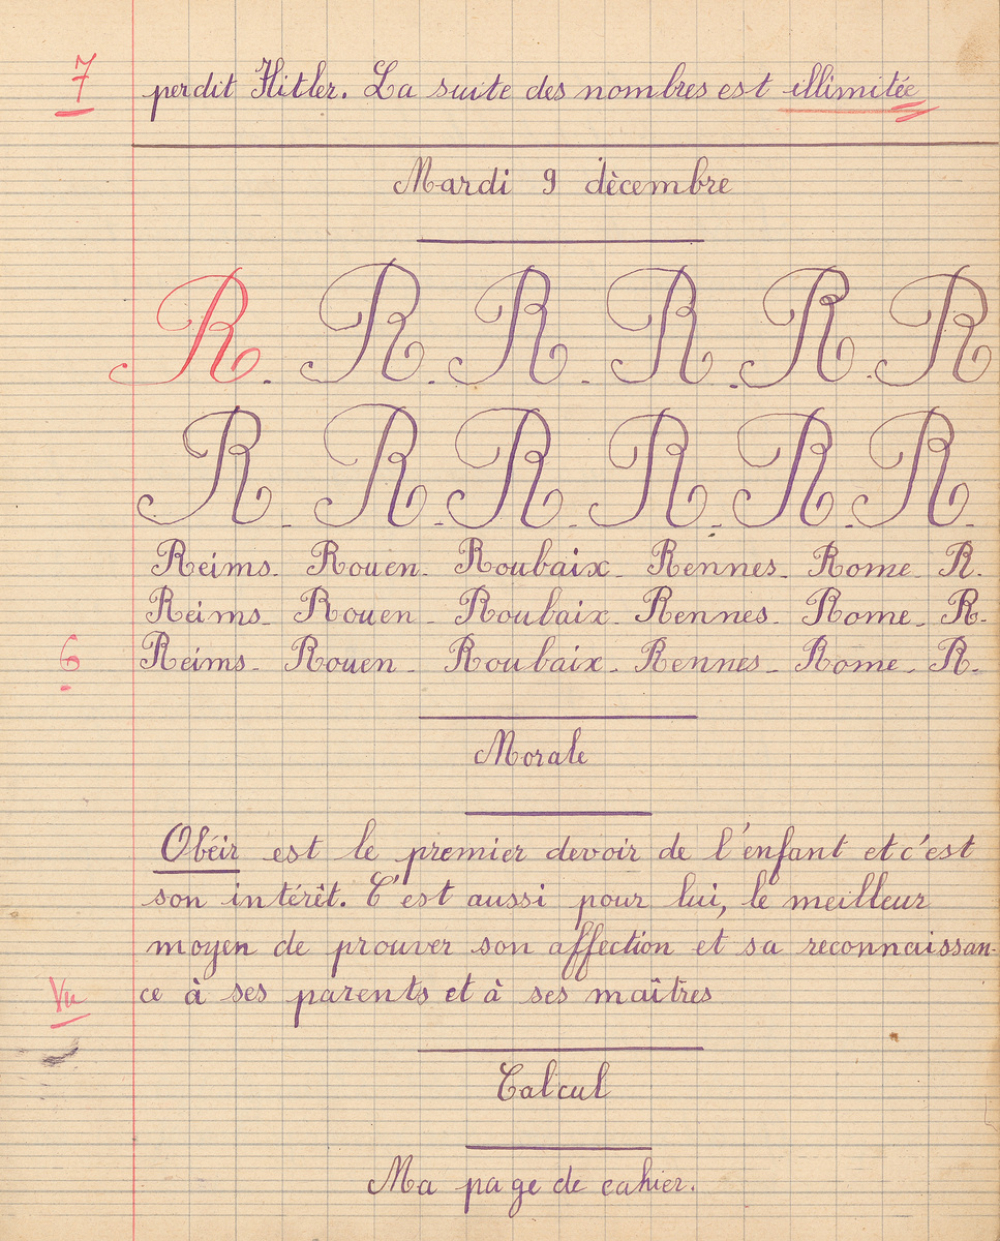 7 perdit Hitler. La suite des nombres est illimitée
Mardi 9 décembre
R. R. R. R. R. R
R. R. R. R. R. R.
Reims. Rouen. Roubaix. Rennes. Rome. R.
Reims. Rouen. Roubaix. Rennes. Rome. R.
6 Reims. Rouen. Roubaix. Rennes. Rome. R.
Morale
Obéir est le premier devoir de l'enfant et c'est
son intérêt. C'est aussi pour lui, le meilleur
moyen de prouver son affection et sa reconnaissan-
Vu ce à ses parents et à ses maîtres
Calcul
Ma page de cahier.